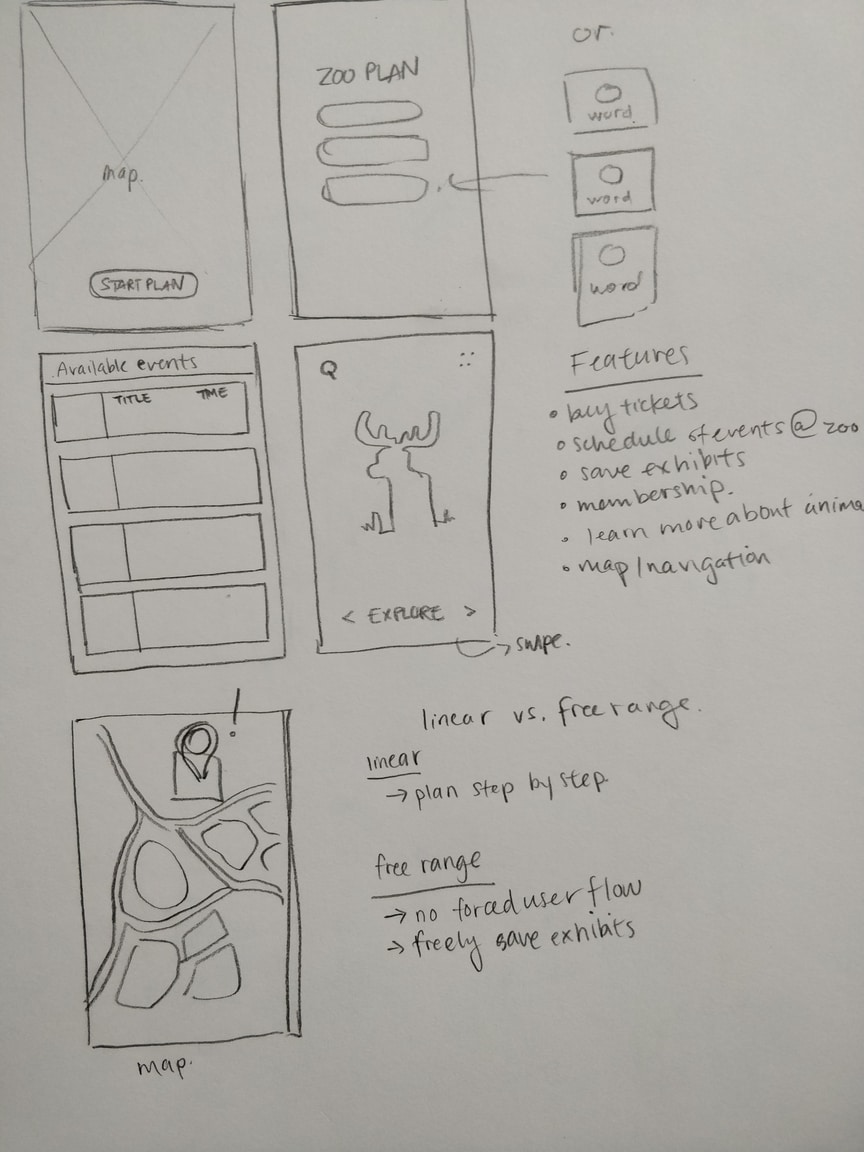 map.
START PLAN
ZOO PLAN
or.
word.
word
word
Available events
TITLE TIME
Q
< EXPLORE >
→ swipe.
Features
• buy tickets
• schedule of events @ zoo
• save exhibits
• membership.
• learn more about anima
• map/navigation
!
map.
linear vs. free range.
linear
→ plan step by step
free range
→ no forced user flow
→ freely save exhibits